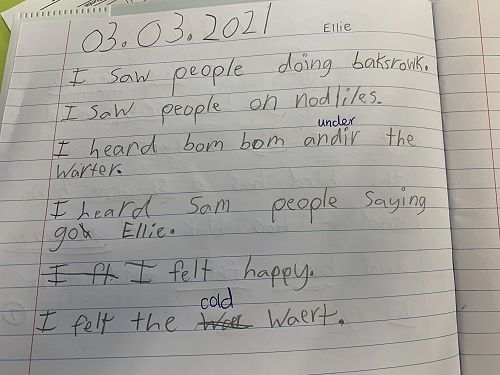 03.03.2021 Ellie
I saw people doing baksrowk.
I saw people on nodliles.
under
I heard bom bom andir the
warter.
I heard Sam people saying
gow Ellie.
I ft I felt happy.
cold
I felt the Waert.